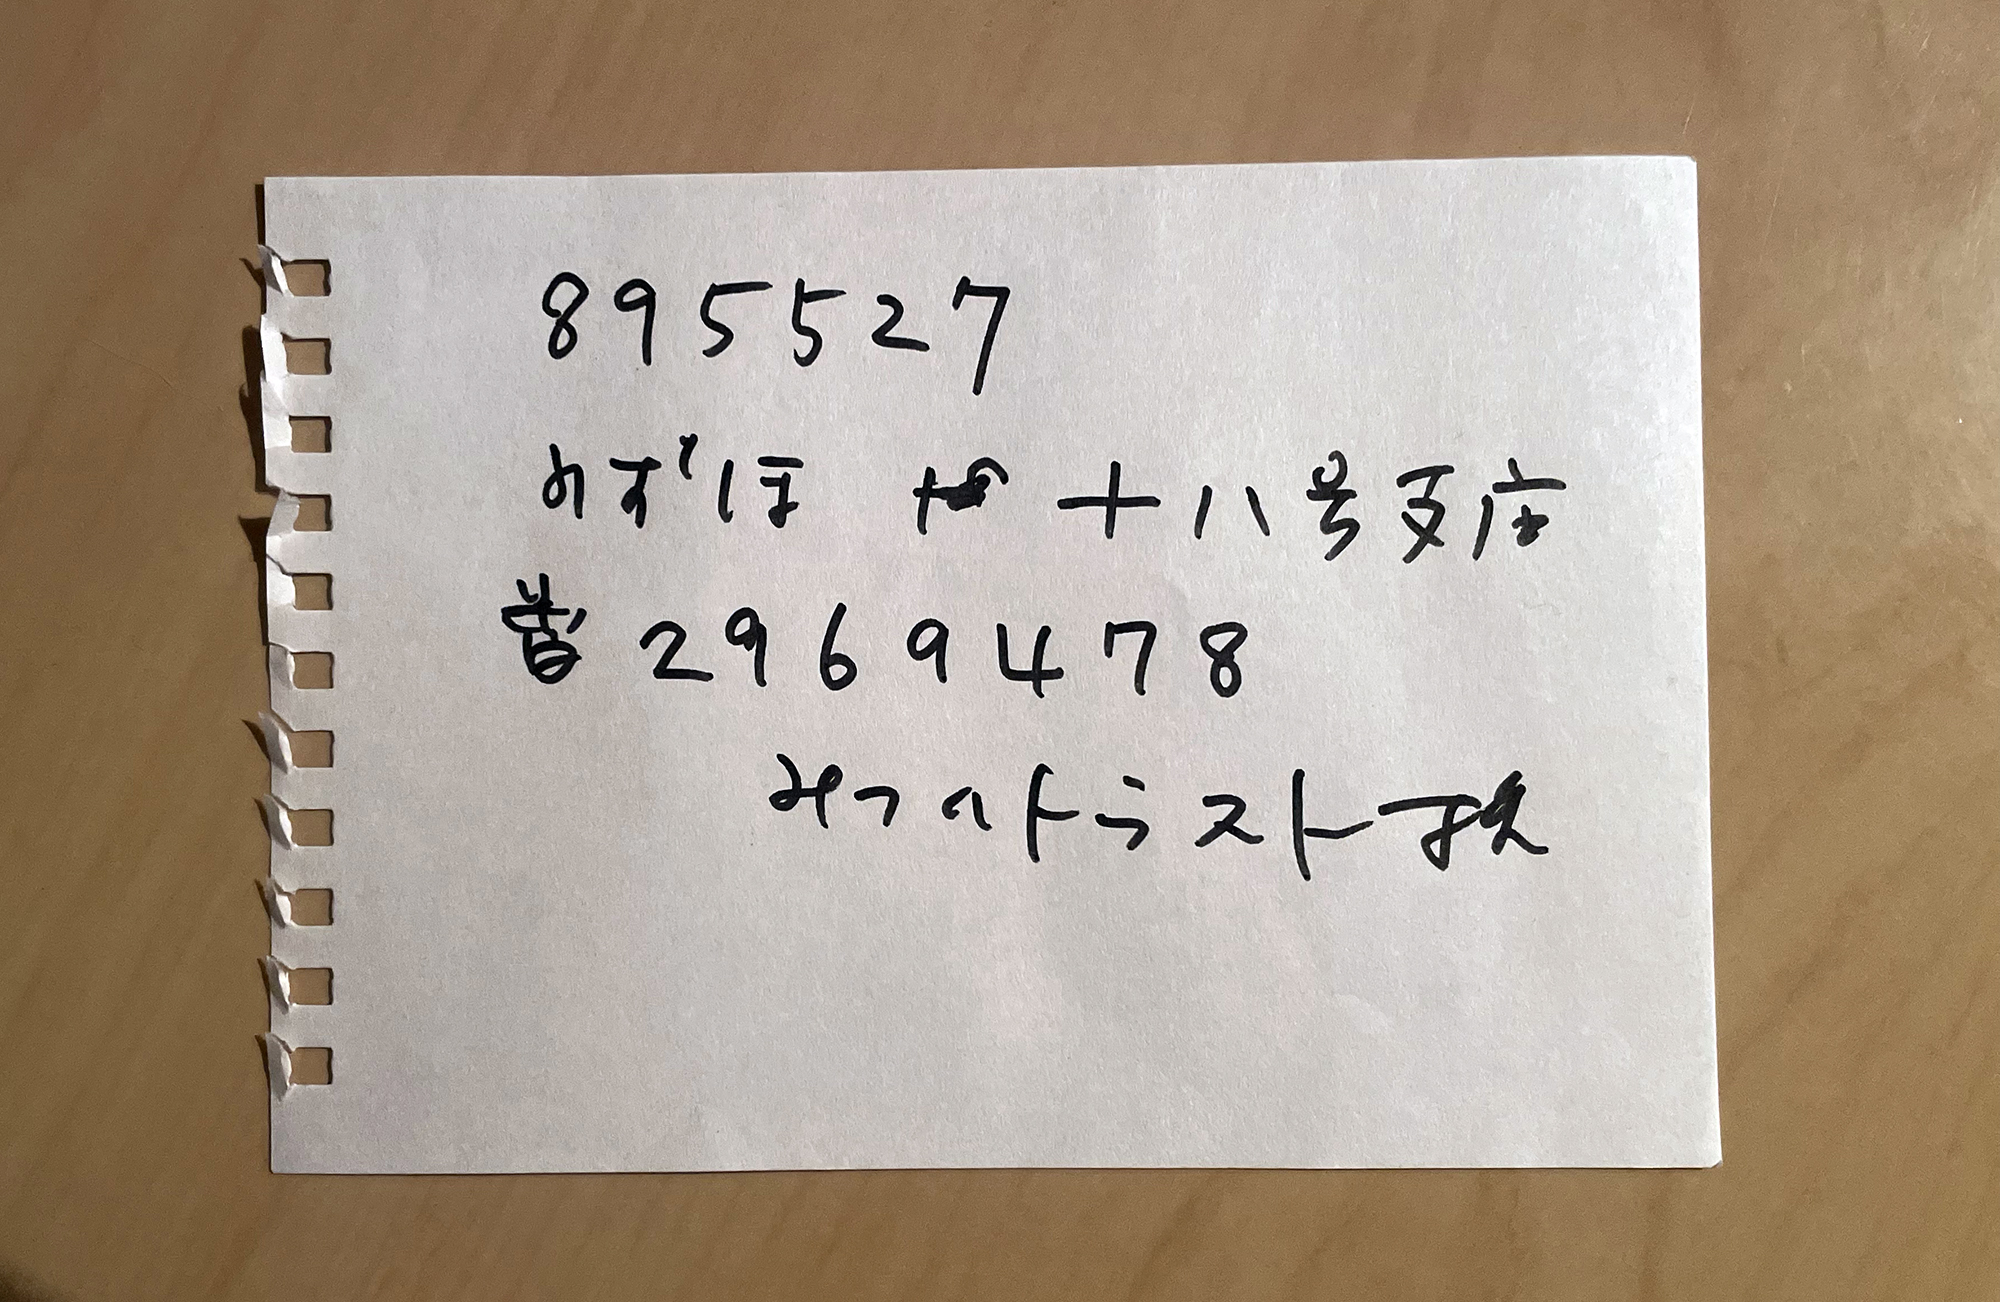 895527
みずほ 十八号支店
普 2969478
トラスト